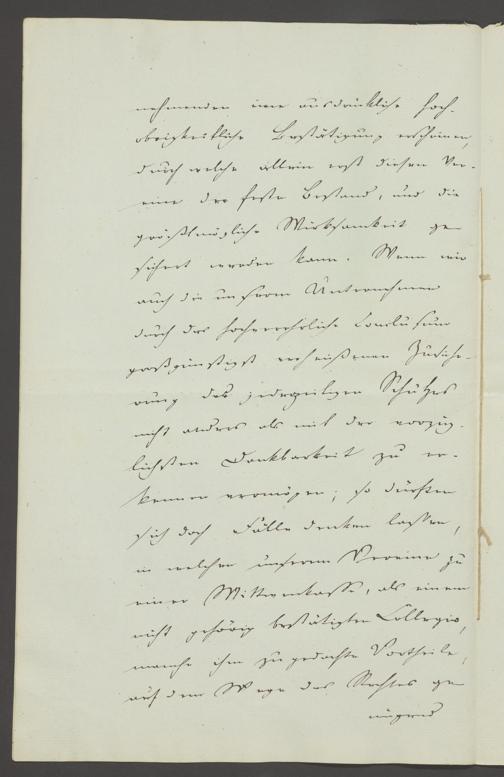 nehmenden eine ausdrückliche hoch-
obrigkeitliche Bestätigung erscheinen,
durch welche allein erst diesem Ver-
eine der feste Bestand, und die
größtmögliche Wirksamkeit ge-
sichert werden kann. Wenn wir
auch die unserm Unternehmen
durch das hochverehrliche Conclusum
großgünstigst verheißenen Zusiche-
rung des jederzeitigen Schutzes
nicht anders als mit der vorzüg-
lichsten Dankbarkeit zu er-
kennen vermögen; so dürften
sich doch Fälle denken lassen,
in welchen unserem Vereine zu
einer Wittwenkasse, als einem
nicht gehörig bestätigten Collegio,
manche ihm zugedachte Vortheile,
auf dem Wege des Rechtes ge